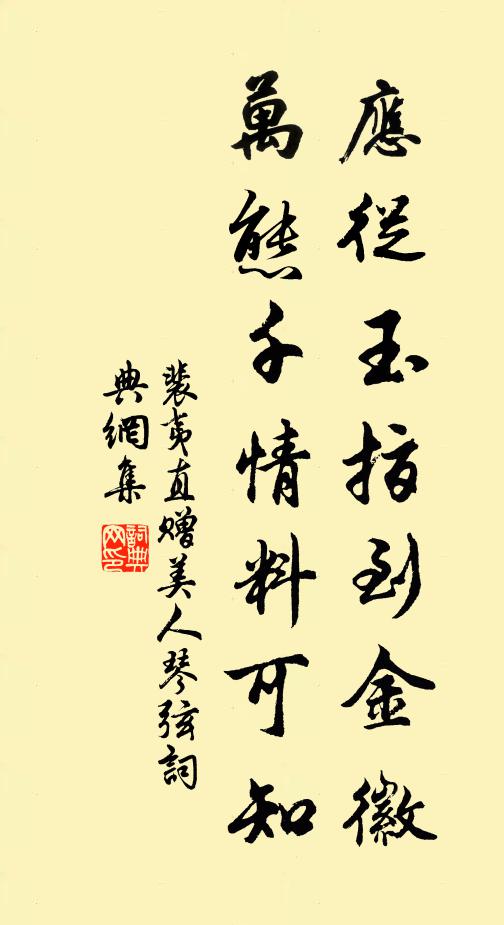 應從玉指到金徽
萬態千情料可知
裴夷直赠美人琴弦詞
典網集
詞典網印